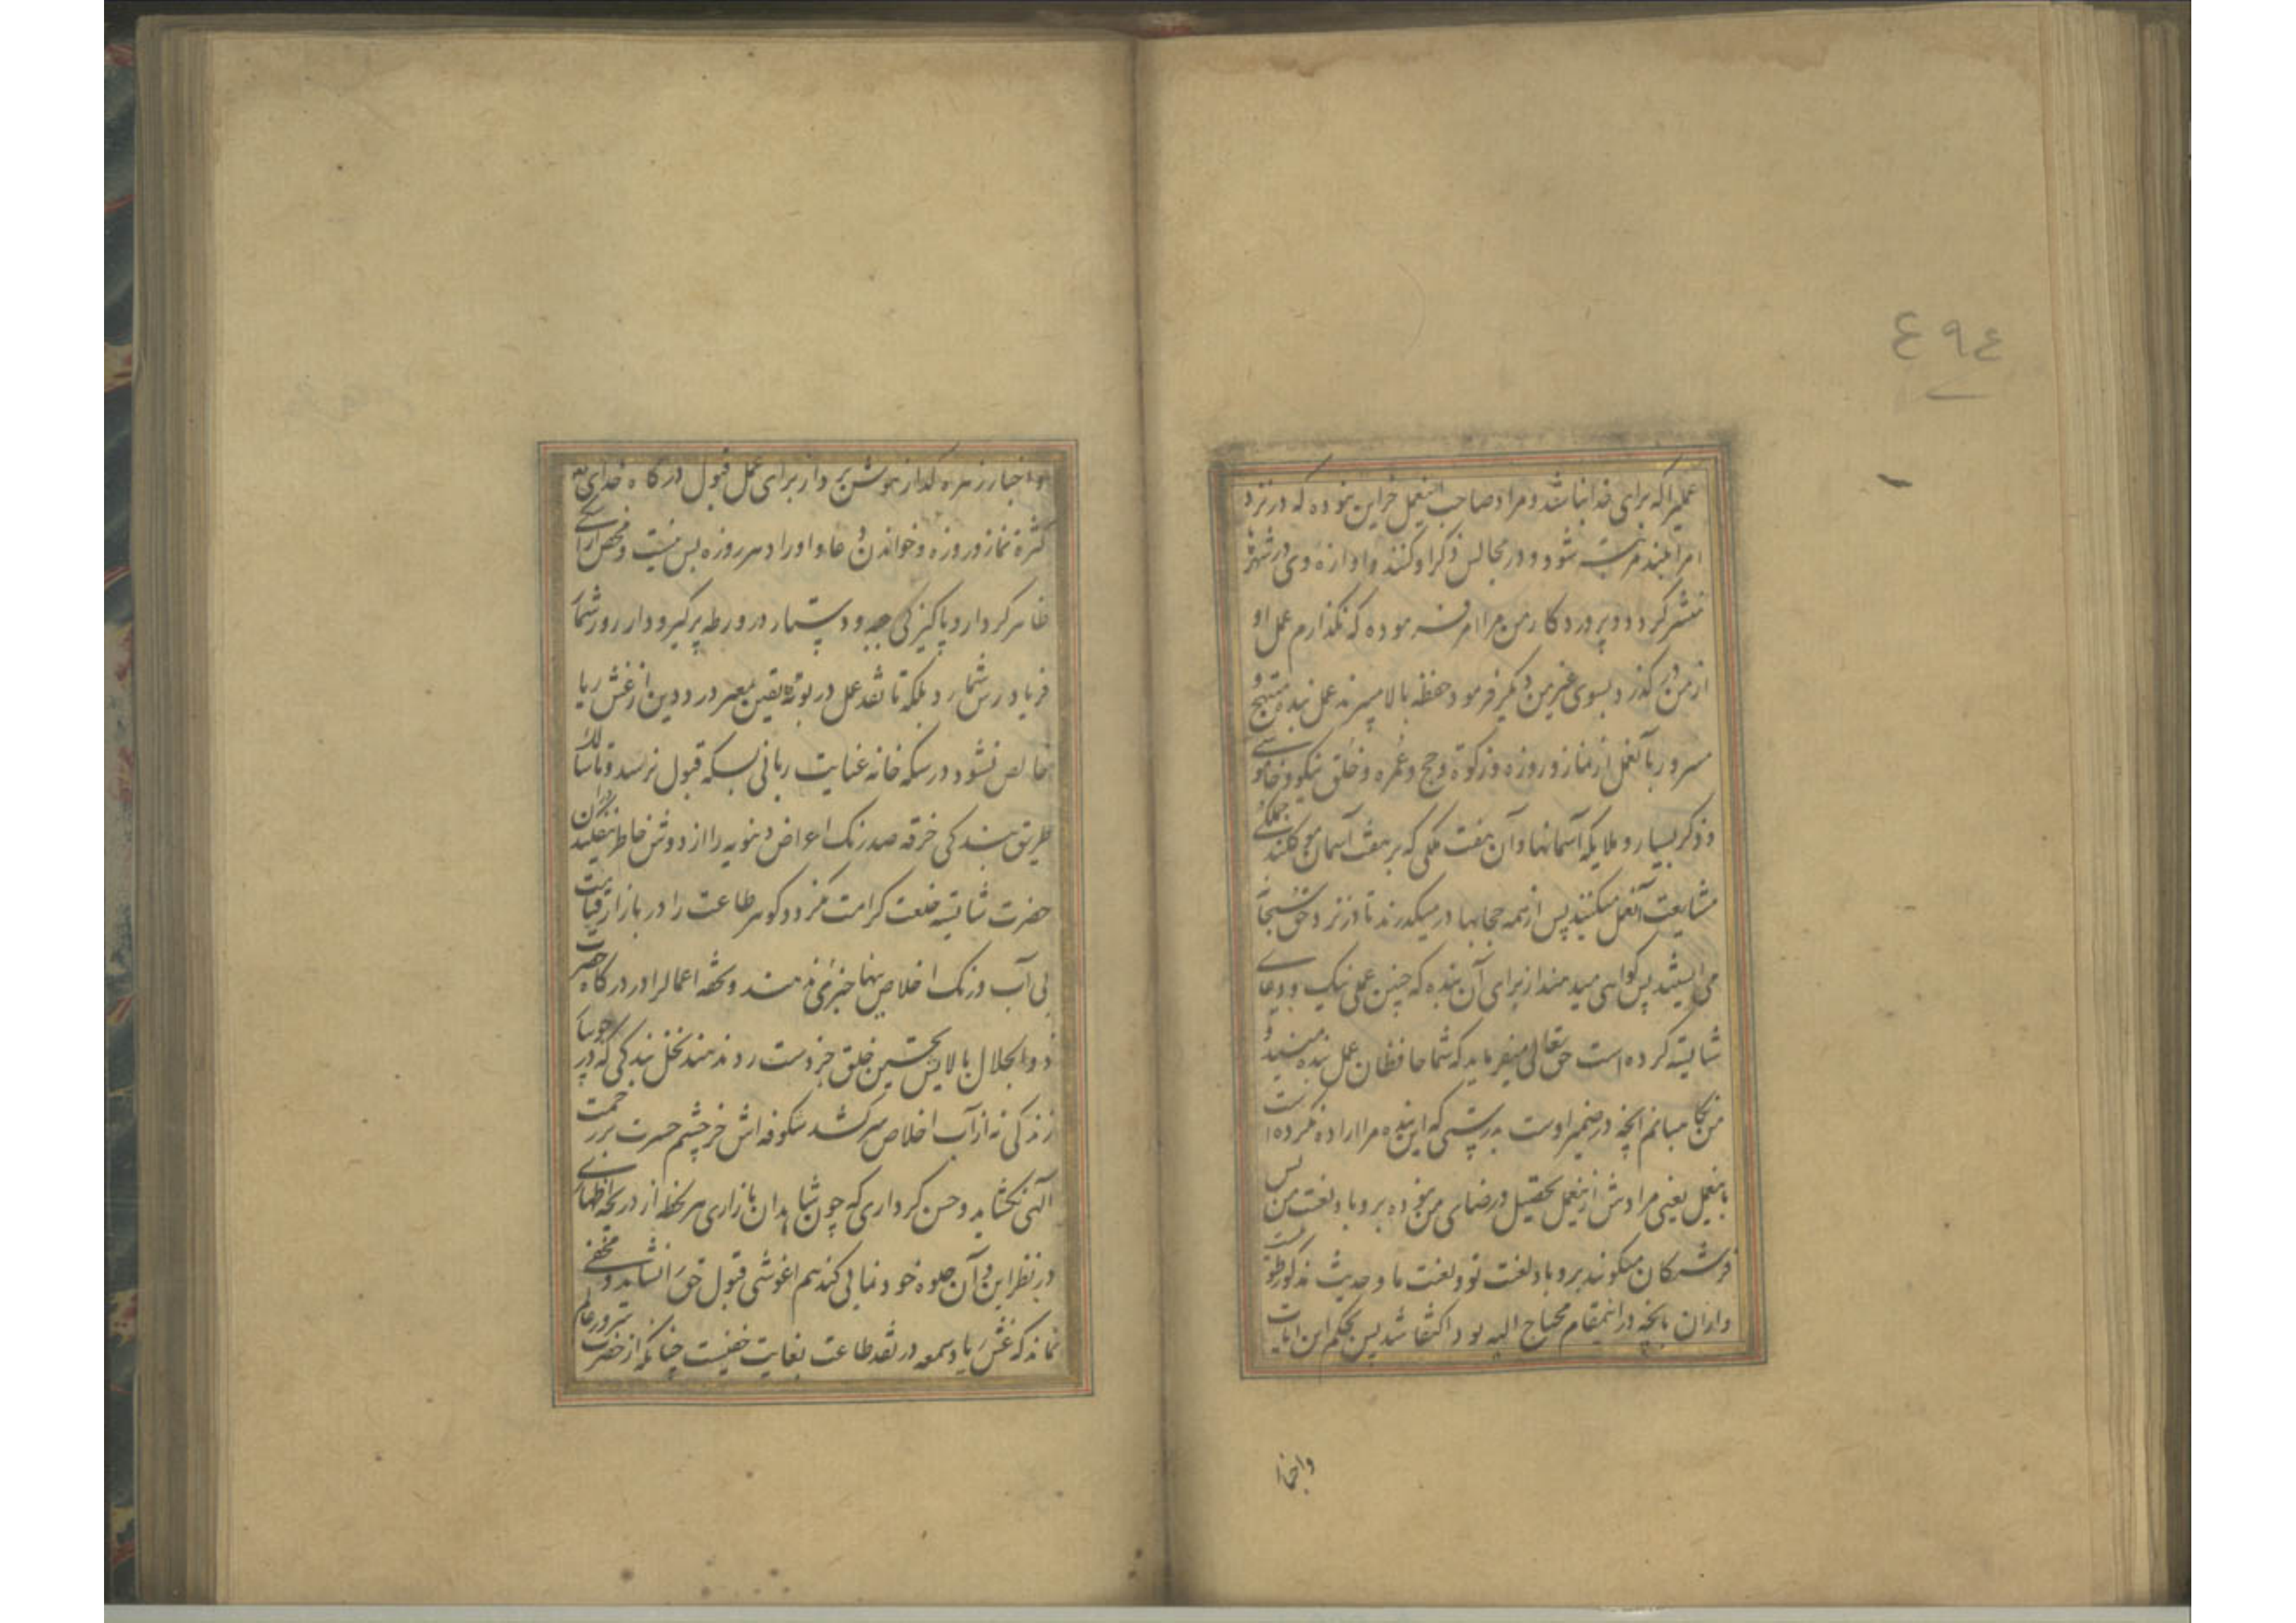 ٤٩٤
عملیرا که برای خدا نباشد و مراد صاحب اینعمل جز این نبوده که در نزد
امرا بلند مرتبت شود و در مجالس ذکر او کنند و اوازه وی در شهرها
منتشر کردد و پروردکار من مرا امر فرموده که نکذارم عمل او
از من در کذرد و بسوی غیر من دیکر فرمود حفظه بالا میبرند عمل بنده مبتهج و
مسرور بآنعمل از نماز و روزه و زکوة و حج و عمره و خلق نیکو و خاموشی
و ذکر بسیار و ملایکه آسمانها و آن هفت ملکی که بر هفت آسمان موکلند جملکی
مشایعت آنعمل میکنند پس از همه حجابها در میکذرند تا در نزد حق سبحانه
می ایستند پس کواهی میدهند از برای آن بنده که چنین عملی نیک و دعای
شایسته کرده است حق تعالی میفرماید که شما حافظان عمل بنده منید و
من نکاهبانم آنچه در ضمیر اوست بدرستی که این بنده مرا اراده نکرده است
باینعمل یعنی مرادش از ینعمل تحصیل رضای من نبوده برو باد لعنت من پس
فرشتکان میکویند برو باد لعنت تو و لعنت ما و حدیث مذکور طولیست
و ازان بانچه درانمقام محتاج الیه بود اکتفا شد پس بحکم این ایات
واخبار
و اخبار زهره کداز هوش بر دار برای عمل قبول درکاه خدای تع
کثرة نماز و روزه و خواندن دعا و اوراد هر روزه بس نیست و محض آراستکی
ظاهر کردار و پاکیزکی جبه و دستار در ورطه پر کیر و دار روز شمار
فریاد رس شما رد بلکه تا نقد عمل در بوته یقین معبر درد دین از غش ریا
خالص نشود در سکه خانه عنایت ربانی بسکه قبول نرسد و تا سالک
طریق بندکی خرقه صد رنک اعراض دنیویه را از دوش خاطر نیفکند دران
حضرت شایسته خلعت کرامت نکردد کوهر طاعت را در بازار قیامت
بی آب و رنک اخلاص بهای خیری ندهند و تحفه اعمالرا در درکاه حضرت
ذو الجلال بالایش تحسین خلق جز دست رد ندهند نخل بندکی که در جویبار
زندکی نه از آب اخلاص سر کشد شکوفه اش جز چشم حسرت بر رحمت
آلهی نکشاید و حسن کرداری که چون شاهدان بازاری هر لحظه از دریچه اظهاری
در نظر این و آن جلوه خود نمایی کند هم اغوشی قبول حق را نشاید و مخفی
نماند که غش ریا و سمعه در نقد طاعت بغایت خفیست چنانکه از حضرت سرور عالم